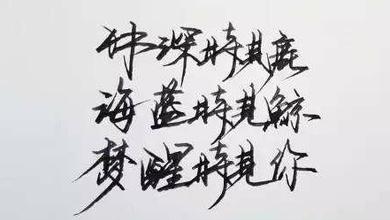 林深時見鹿
海蓝時見鲸
梦醒時見你